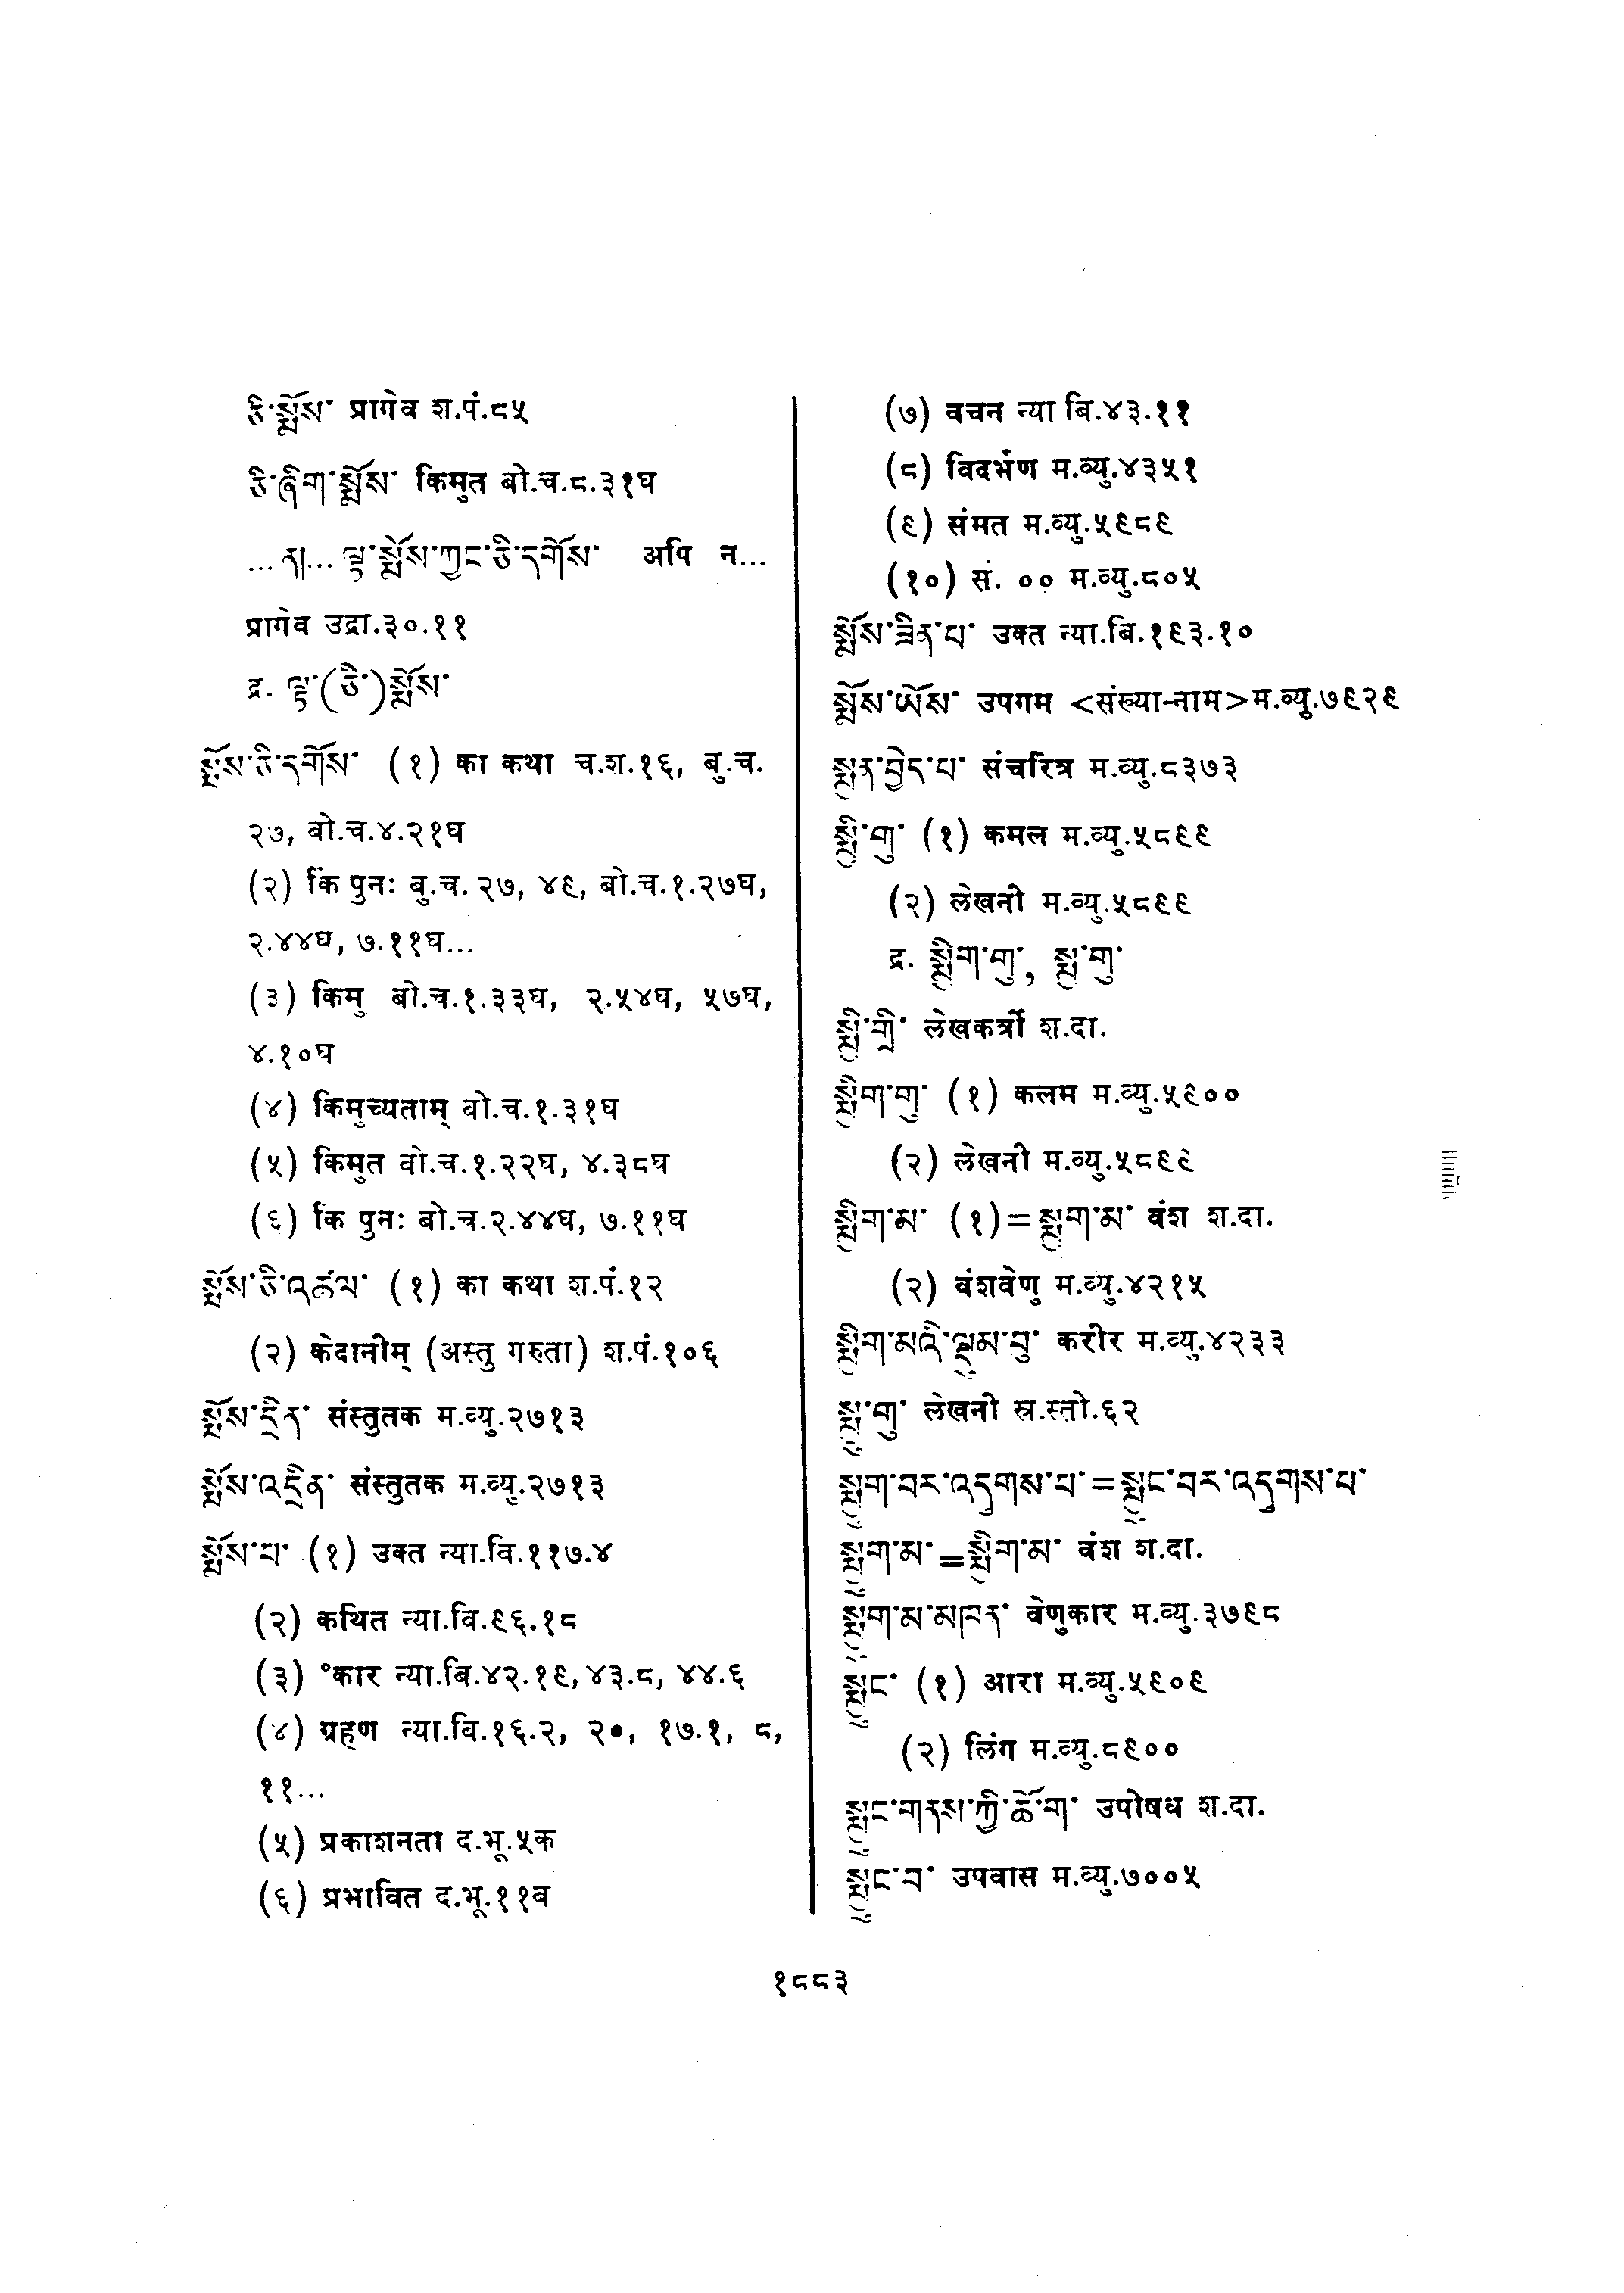 ཅི་སྨོས་ प्रागेव श.पं.८५
ཅི་ཞིག་སྨོས་ किमुत बो.च.८.३१घ
...ན།... ལྟ་སྨོས་ཀྱང་ཅི་དགོས་ अपि न...
प्रागेव उद्रा.३०.११
द्र. ལྟ་(ཅི་)སྨོས་
སྨོས་ཅི་དགོས་ (१) का कथा च.श.१६, बु.च.
२७, बो.च.४.२१घ
(२) किं पुनः बु.च. २७, ४९, बो.च.१.२७घ,
२.४४घ, ७.११घ...
(३) किमु बो.च.१.३३घ, २.५४घ, ५७घ,
४.१०घ
(४) किमुच्यताम् बो.च.१.३१घ
(५) किमुत बो.च.१.२२घ, ४.३८घ
(६) किं पुनः बो.च.२.४४घ, ७.११घ
སྨོས་ཅི་འཚལ་ (१) का कथा श.पं.१२
(२) केदानीम् (अस्तु गरुता) श.पं.१०६
སྨོས་དྲིན་ संस्तुतक म.व्यु.२७१३
སྨོས་འདྲིན་ संस्तुतक म.व्यु.२७१३
སྨོས་པ་ (१) उक्त न्या.बि.११७.४
(२) कथित न्या.बि.९६.१८
(३) °कार न्या.बि.४२.१९, ४३.८, ४४.६
(४) ग्रहण न्या.बि.१६.२, २०, १७.१, ८,
११...
(५) प्रकाशनता द.भू.५क
(६) प्रभावित द.भू.११ब
(७) वचन न्या बि.४३.११
(८) विदर्भण म.व्यु.४३५१
(९) संमत म.व्यु.५९८९
(१०) सं. ०० म.व्यु.८०५
སྨོས་ཟིན་པ་ उक्त न्या.बि.१९३.१०
སྨོས་ཡོས་ उपगम <संख्या-नाम>म.व्यु.७९२९
སྨྱན་བྱེད་པ་ संचरित्र म.व्यु.८३७३
སྨྱི་གུ་ (१) कमल म.व्यु.५८९९
(२) लेखनी म.व्यु.५८९९
द्र. སྨྱིག་གུ་, སྨྱུ་གུ་
སྨྱི་གྲི་ लेखकर्त्री श.दा.
སྨྱིག་གུ་ (१) कलम म.व्यु.५९००
(२) लेखनी म.व्यु.५८९९
སྨྱིག་མ་ (१)=སྨྱུག་མ་ वंश श.दा.
(२) वंशवेणु म.व्यु.४२१५
སྨྱིག་མའི་ལྡུམ་བུ་ करीर म.व्यु.४२३३
སྨྱུ་གུ་ लेखनी स्र.स्तो.६२
སྨྱུག་བར་འདུགས་པ་=སྨྱུང་བར་འདུགས་པ་
སྨྱུག་མ་=སྨྱིག་མ་ वंश श.दा.
སྨྱུག་མ་མཁན་ वेणुकार म.व्यु.३७९८
སྨྱུང་ (१) आरा म.व्यु.५९०९
(२) लिंग म.व्यु.८९००
སྨྱུང་གནས་ཀྱི་ཆོ་ག་ उपोषध श.दा.
སྨྱུང་བ་ उपवास म.व्यु.७००५
१८८३